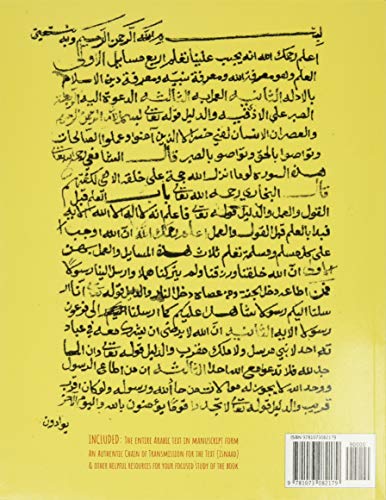 بسم الله الرحمن الرحيم وبه نستعين
اعلم رحمك الله انه يجب علينا تعلم اربع مسايل الاولى
العلم وهو معرفة الله ومعرفة نبيه ومعرفة دين الاسلام
بالادله الثانيه العمل به الثالثه الدعوة اليه الرابعه
الصبر على الاذى فيه والدليل قوله تعالى بسم الله الرحمن الرحيم
والعصر ان الانسان لفي خسر الا الذين امنوا وعملوا الصالحات
وتواصوا بالحق وتواصوا بالصبر قال الشافعي رحمه الله تعالى
هذه السورة لو ما انزل الله حجة على خلقه الا هي لكفتهم
قال البخاري رحمه الله تعالى باب العلم قبل
القول والعمل والدليل قوله تعالى فاعلم انه لا اله الا الله الايه
فبدا بالعلم قبل القول والعمل اعلم رحمك الله ان الله اوجب
على كل مسلم ومسلمة تعلم ثلاث هذه المسايل والعمل بهن
الاولى ان الله خلقنا ورزقنا ولم يتركنا هملا وارسل الينا رسولا
فمن اطاعه دخل الجنة ومن عصاه دخل النار والدليل قوله تعالى انا
ارسلنا اليكم رسولا شاهدا عليكم كما ارسلنا الى فرعون
رسولا الايه الثانيه ان الله لا يرضى ان يشرك معه في عباد
ته احد لا نبي مرسل ولا ملك مقرب والدليل قوله تعالى وان المساجد
لله فلا تدعوا مع الله احدا الثالثه ان من اطاع الرسول
ووحد الله لا يجوز له موالاة من حاد الله ورسوله ولو كان اقرب
قريب والدليل قوله تعالى لا تجد قوما يؤمنون بالله واليوم الاخر
يوادون
INCLUDED: THE ENTIRE ARABIC TEXT IN MANUSCRIPT FORM
AN AUTHENTIC CHAIN OF TRANSMISSION FOR THE TEXT (ISNAAD)
& OTHER HELPFUL RESOURCES FOR YOUR FOCUSED STUDY OF THE BOOK
ISBN 9781073082179
90000
9 781073 082179